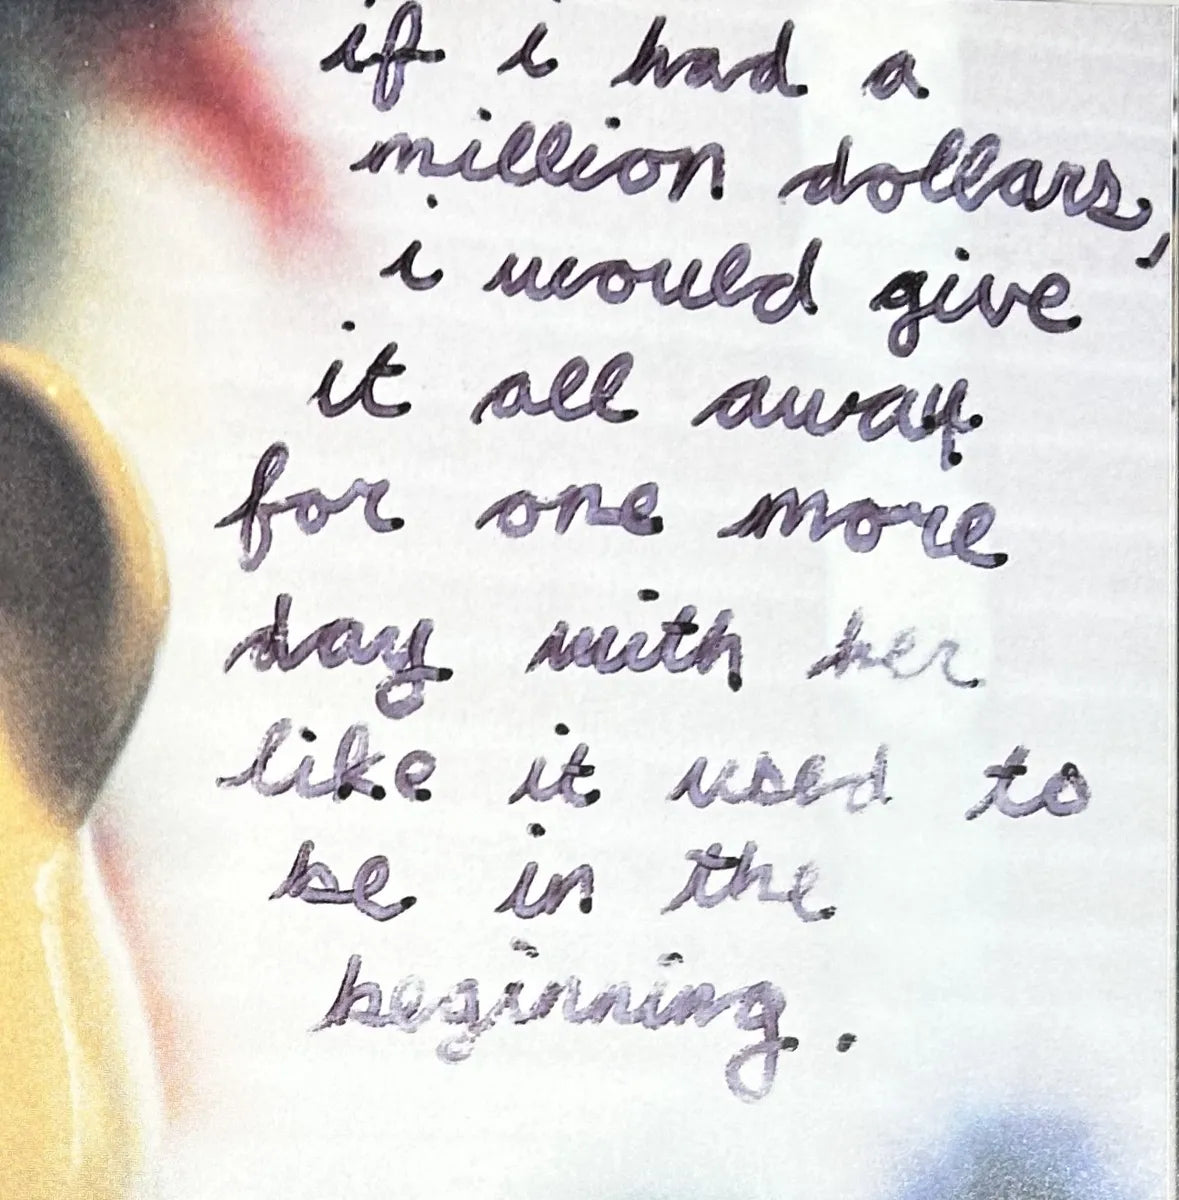 if i had a
million dollars,
i would give
it all away
for one more
day with her
like it used to
be in the
beginning.